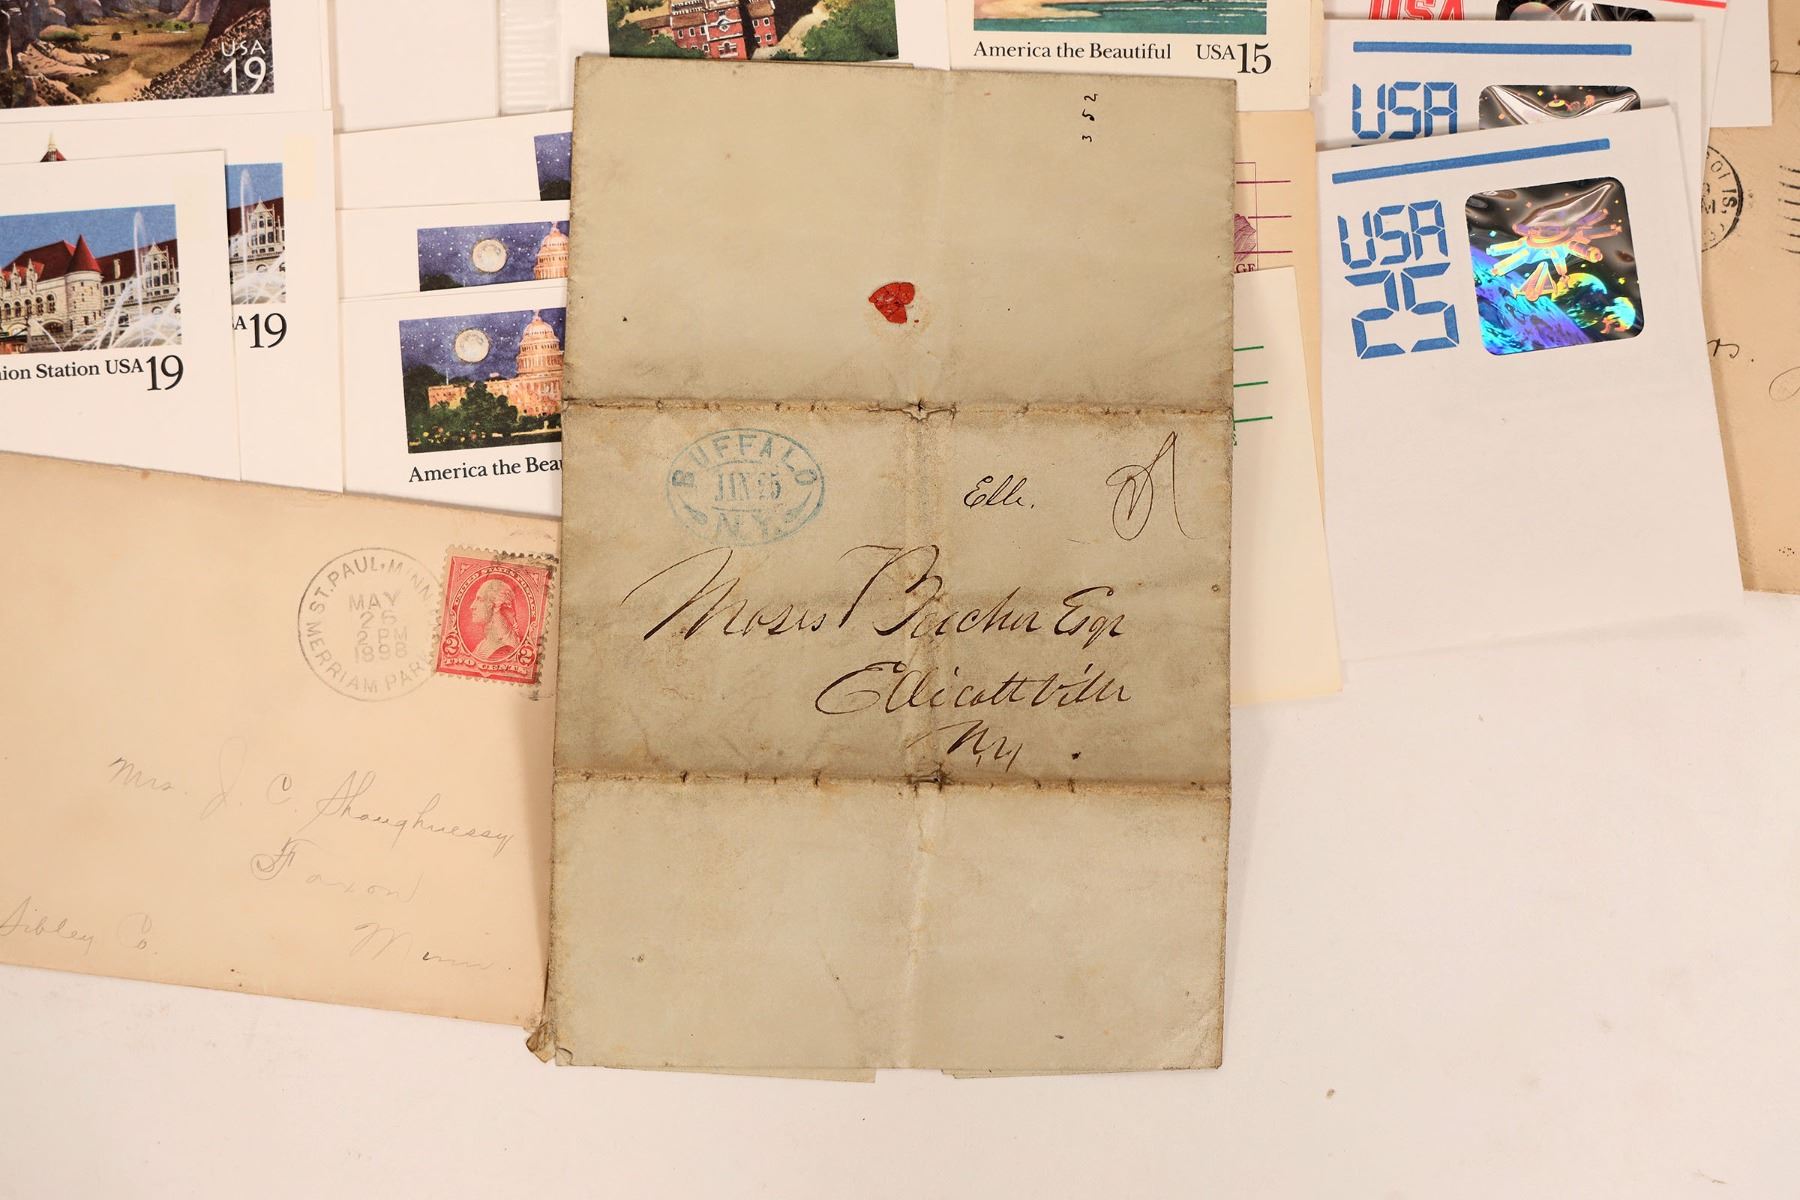 USA
19
America the Beautiful USA 15
USA
USA
USA
25
352
A 19
ion Station USA 19
America the Bea
GE
BUFFALO
JAN 25
N.Y.
Elli.
Moses Beecher Esqr
Ellicottville
N.Y.
ST. PAUL, MINN.
MAY
25
2 PM
1898
MERRIAM PARK
UNITED STATES POSTAGE
2 2
TWO CENTS
Mrs. J. C. Shaughnessy
Faxon
Sibley Co. Minn.
rs.